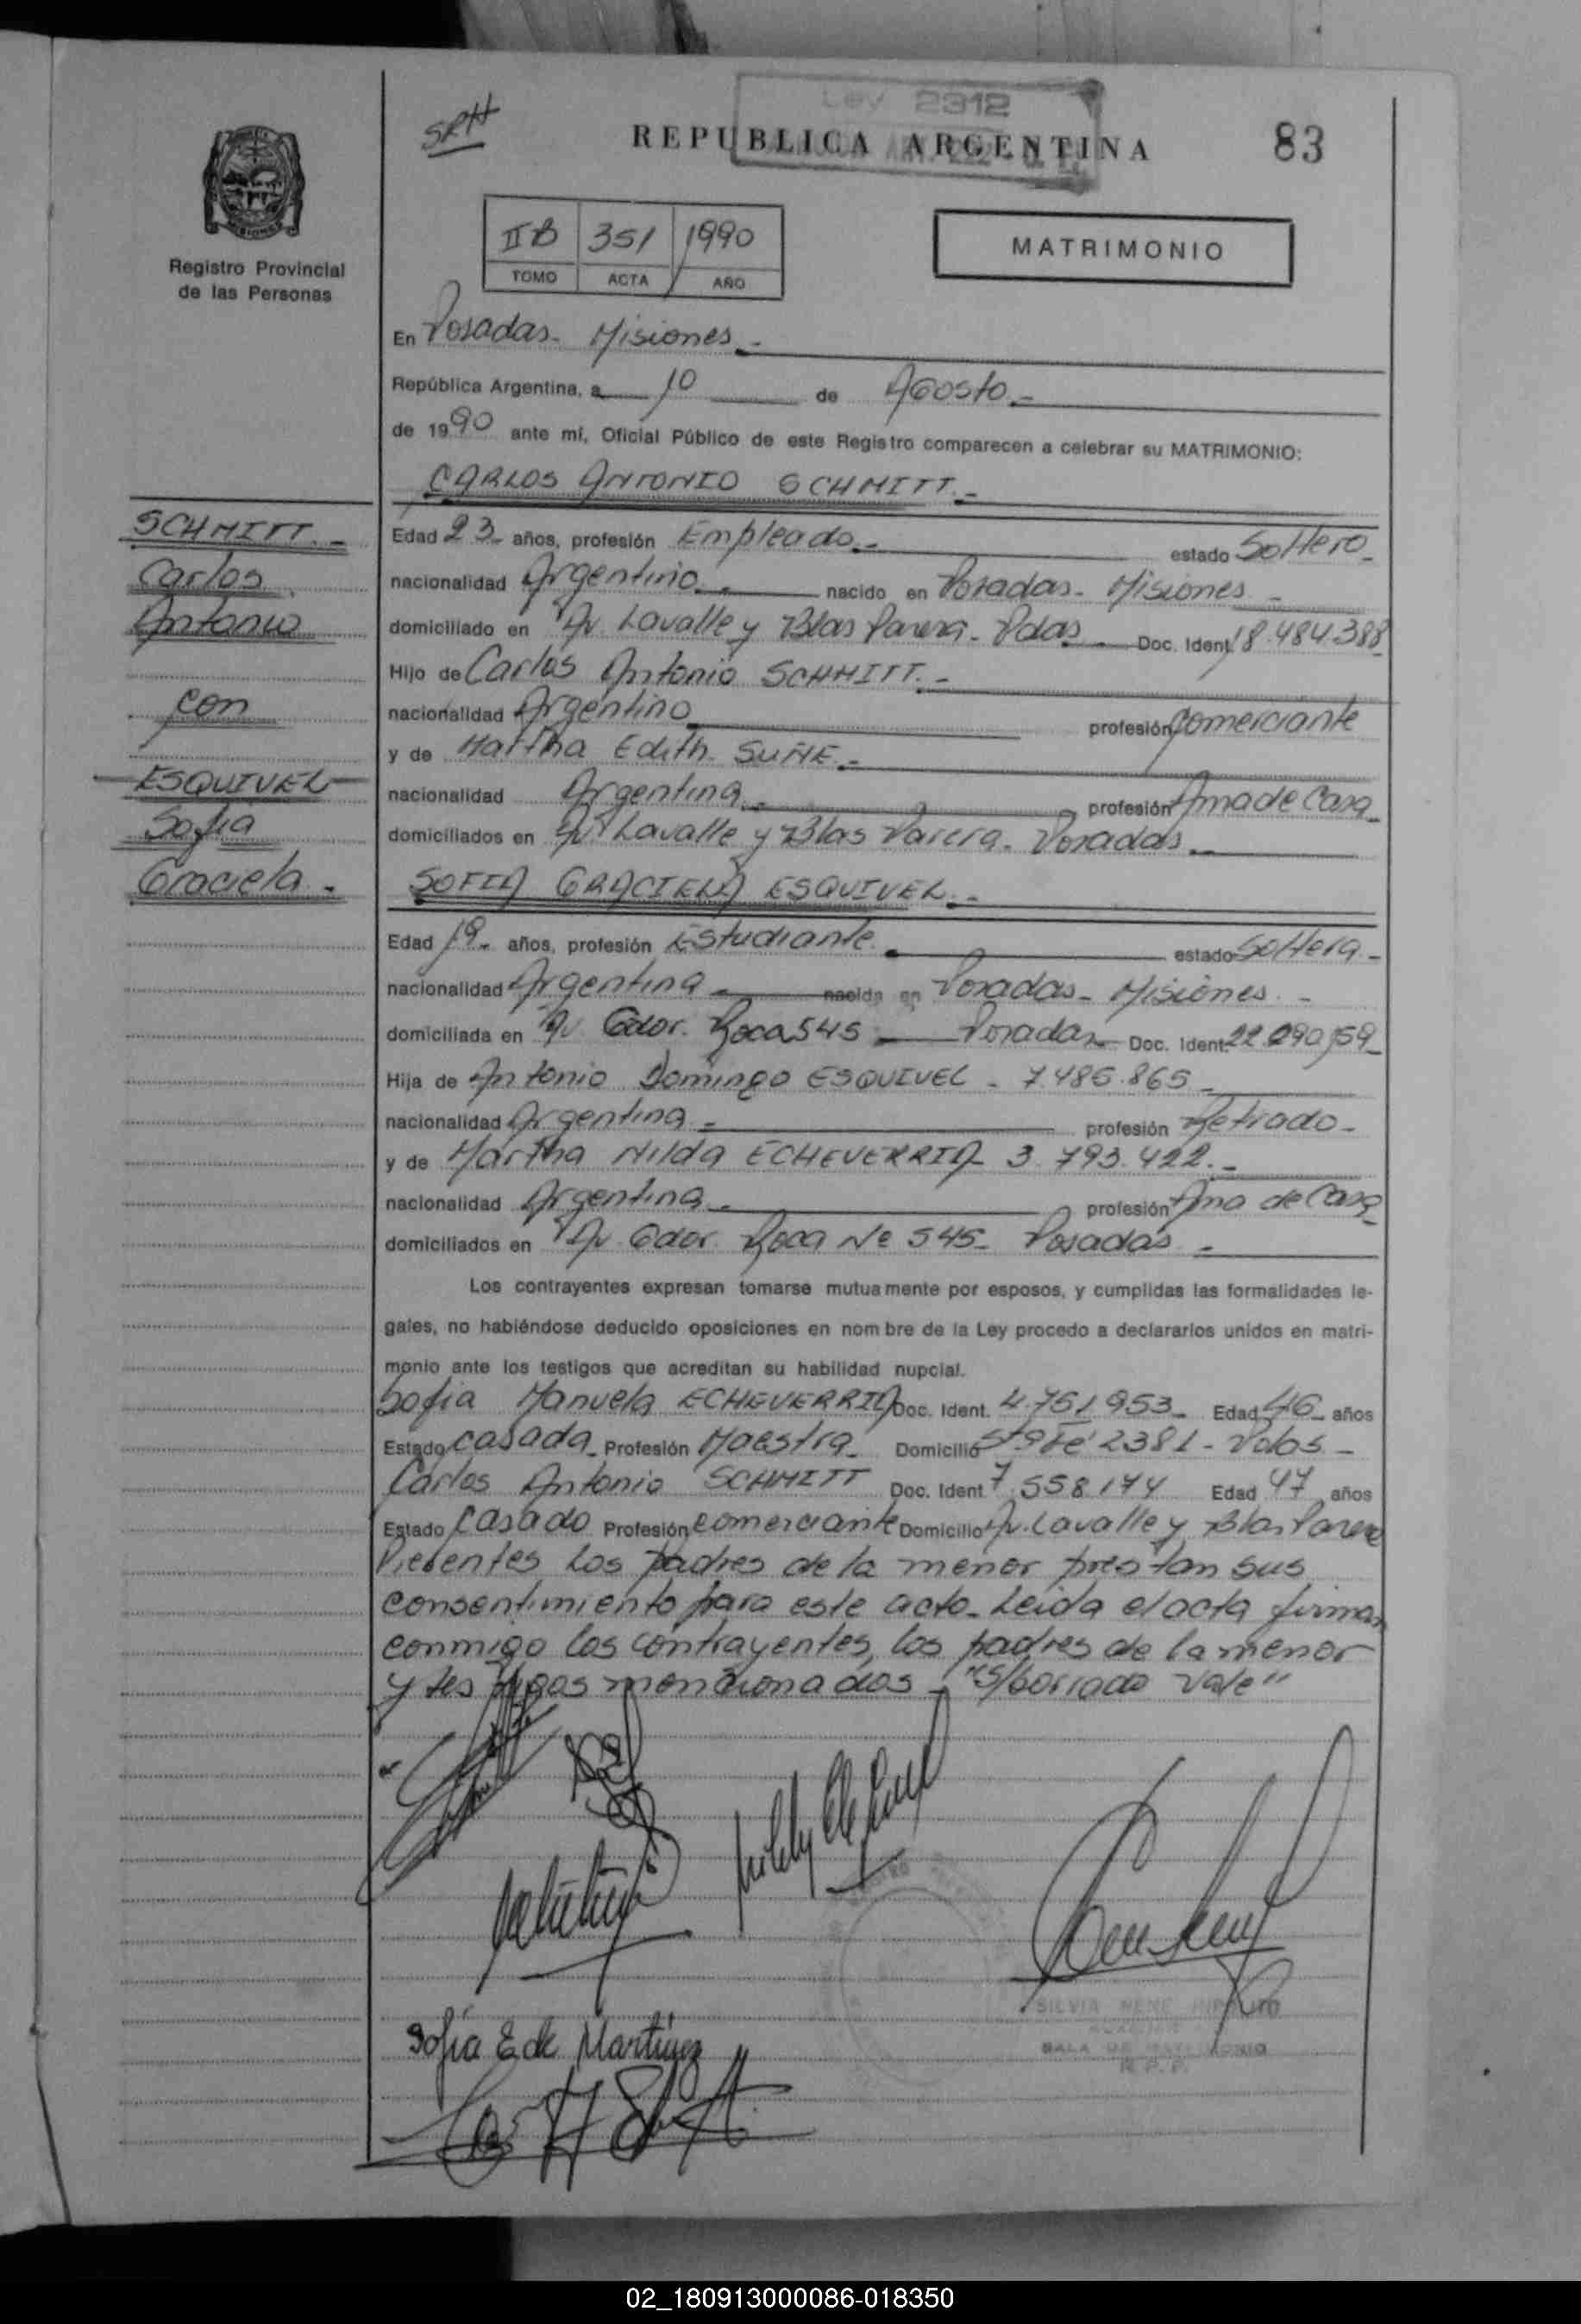 Ley 2312
SRH
REPUBLICA ARGENTINA
83
IIB 351 1990
TOMO ACTA AÑO
MATRIMONIO
Registro Provincial
de las Personas
En Posadas - Misiones -
República Argentina, a 10 de Agosto -
de 1990 ante mí, Oficial Público de este Registro comparecen a celebrar su MATRIMONIO:
CARLOS ANTONIO SCHMITT -
SCHMITT -
Carlos
Antonio
con
ESQUIVEL
Sofia
Graciela -
Edad 23 - años, profesión Empleado - estado Soltero -
nacionalidad Argentino - nacido en Posadas - Misiones -
domiciliado en Av. Lavalle y Blas Parera - Pdas - Doc. Ident. 18.484.388
Hijo de Carlos Antonio SCHMITT -
nacionalidad Argentino profesión Comerciante
y de Martha Edith SUÑE -
nacionalidad Argentina - profesión Ama de Casa -
domiciliados en Av. Lavalle y Blas Parera - Posadas -
SOFIA GRACIELA ESQUIVEL -
Edad 19 - años, profesión Estudiante - estado Soltera -
nacionalidad Argentina - nacida en Posadas - Misiones -
domiciliada en Av. Gdor. Roca 545 - Posadas - Doc. Ident. 22.290.159 -
Hija de Antonio Domingo ESQUIVEL - 7.485.865 -
nacionalidad Argentina - profesión Retirado -
y de Martha Nilda ECHEVERRIA 3.793.422 -
nacionalidad Argentina - profesión Ama de Casa
domiciliados en Av. Gdor. Roca Nº 545 - Posadas -
Los contrayentes expresan tomarse mutuamente por esposos, y cumplidas las formalidades le-
gales, no habiéndose deducido oposiciones en nombre de la Ley procedo a declararlos unidos en matri-
monio ante los testigos que acreditan su habilidad nupcial.
Sofia Manuela ECHEVERRIA Doc. Ident. 4.751.953 - Edad 46 - años
Estado casada - Profesión Maestra - Domicilio Sta Fé 2381 - Pdas -
Carlos Antonio SCHMITT Doc. Ident. 7.558.174 Edad 47 años
Estado Casado Profesión comerciante Domicilio Av. Lavalle y Blas Parera
Presentes los padres de la menor prestan sus
consentimiento para este acto - Leida el acta firman
conmigo los contrayentes, los padres de la menor
y testigos mencionados - "S/borrado Vale"
Sofía E de Martínez
SILVIA RENE HIPOLITO
SALA DE MATRIMONIO
R. P. P.
02_180913000086-018350